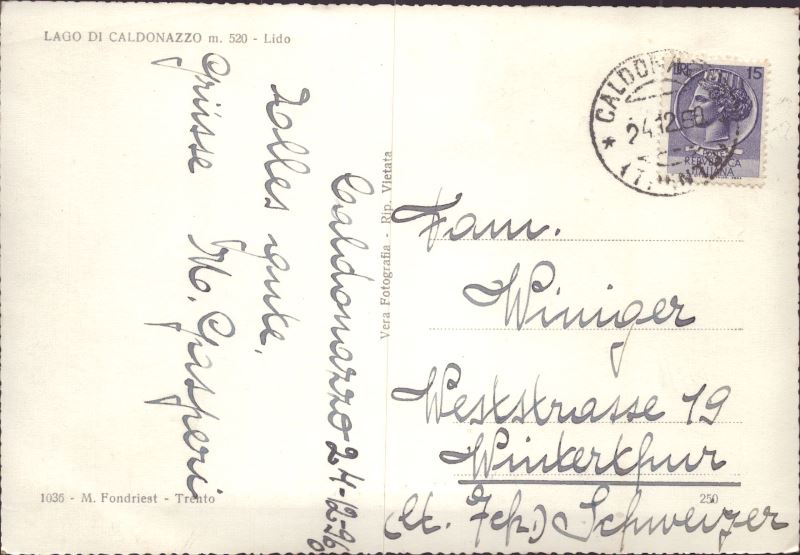 LAGO DI CALDONAZZO m. 520 - Lido
Caldonazzo 24-12-960
Xalles gute,
Grüsse M. Gasperi
Vera Fotografia - Rip. Vietata
1036 - M. Fondriest - Trento
250
* CALDONAZZO
24.12.60
(TRENTO)
LIRE 15
REPUBBLICA
ITALIANA
Fam.
Winiger
Weststrasse 19
Winterthur
(Ct. Zch.) Schweizer